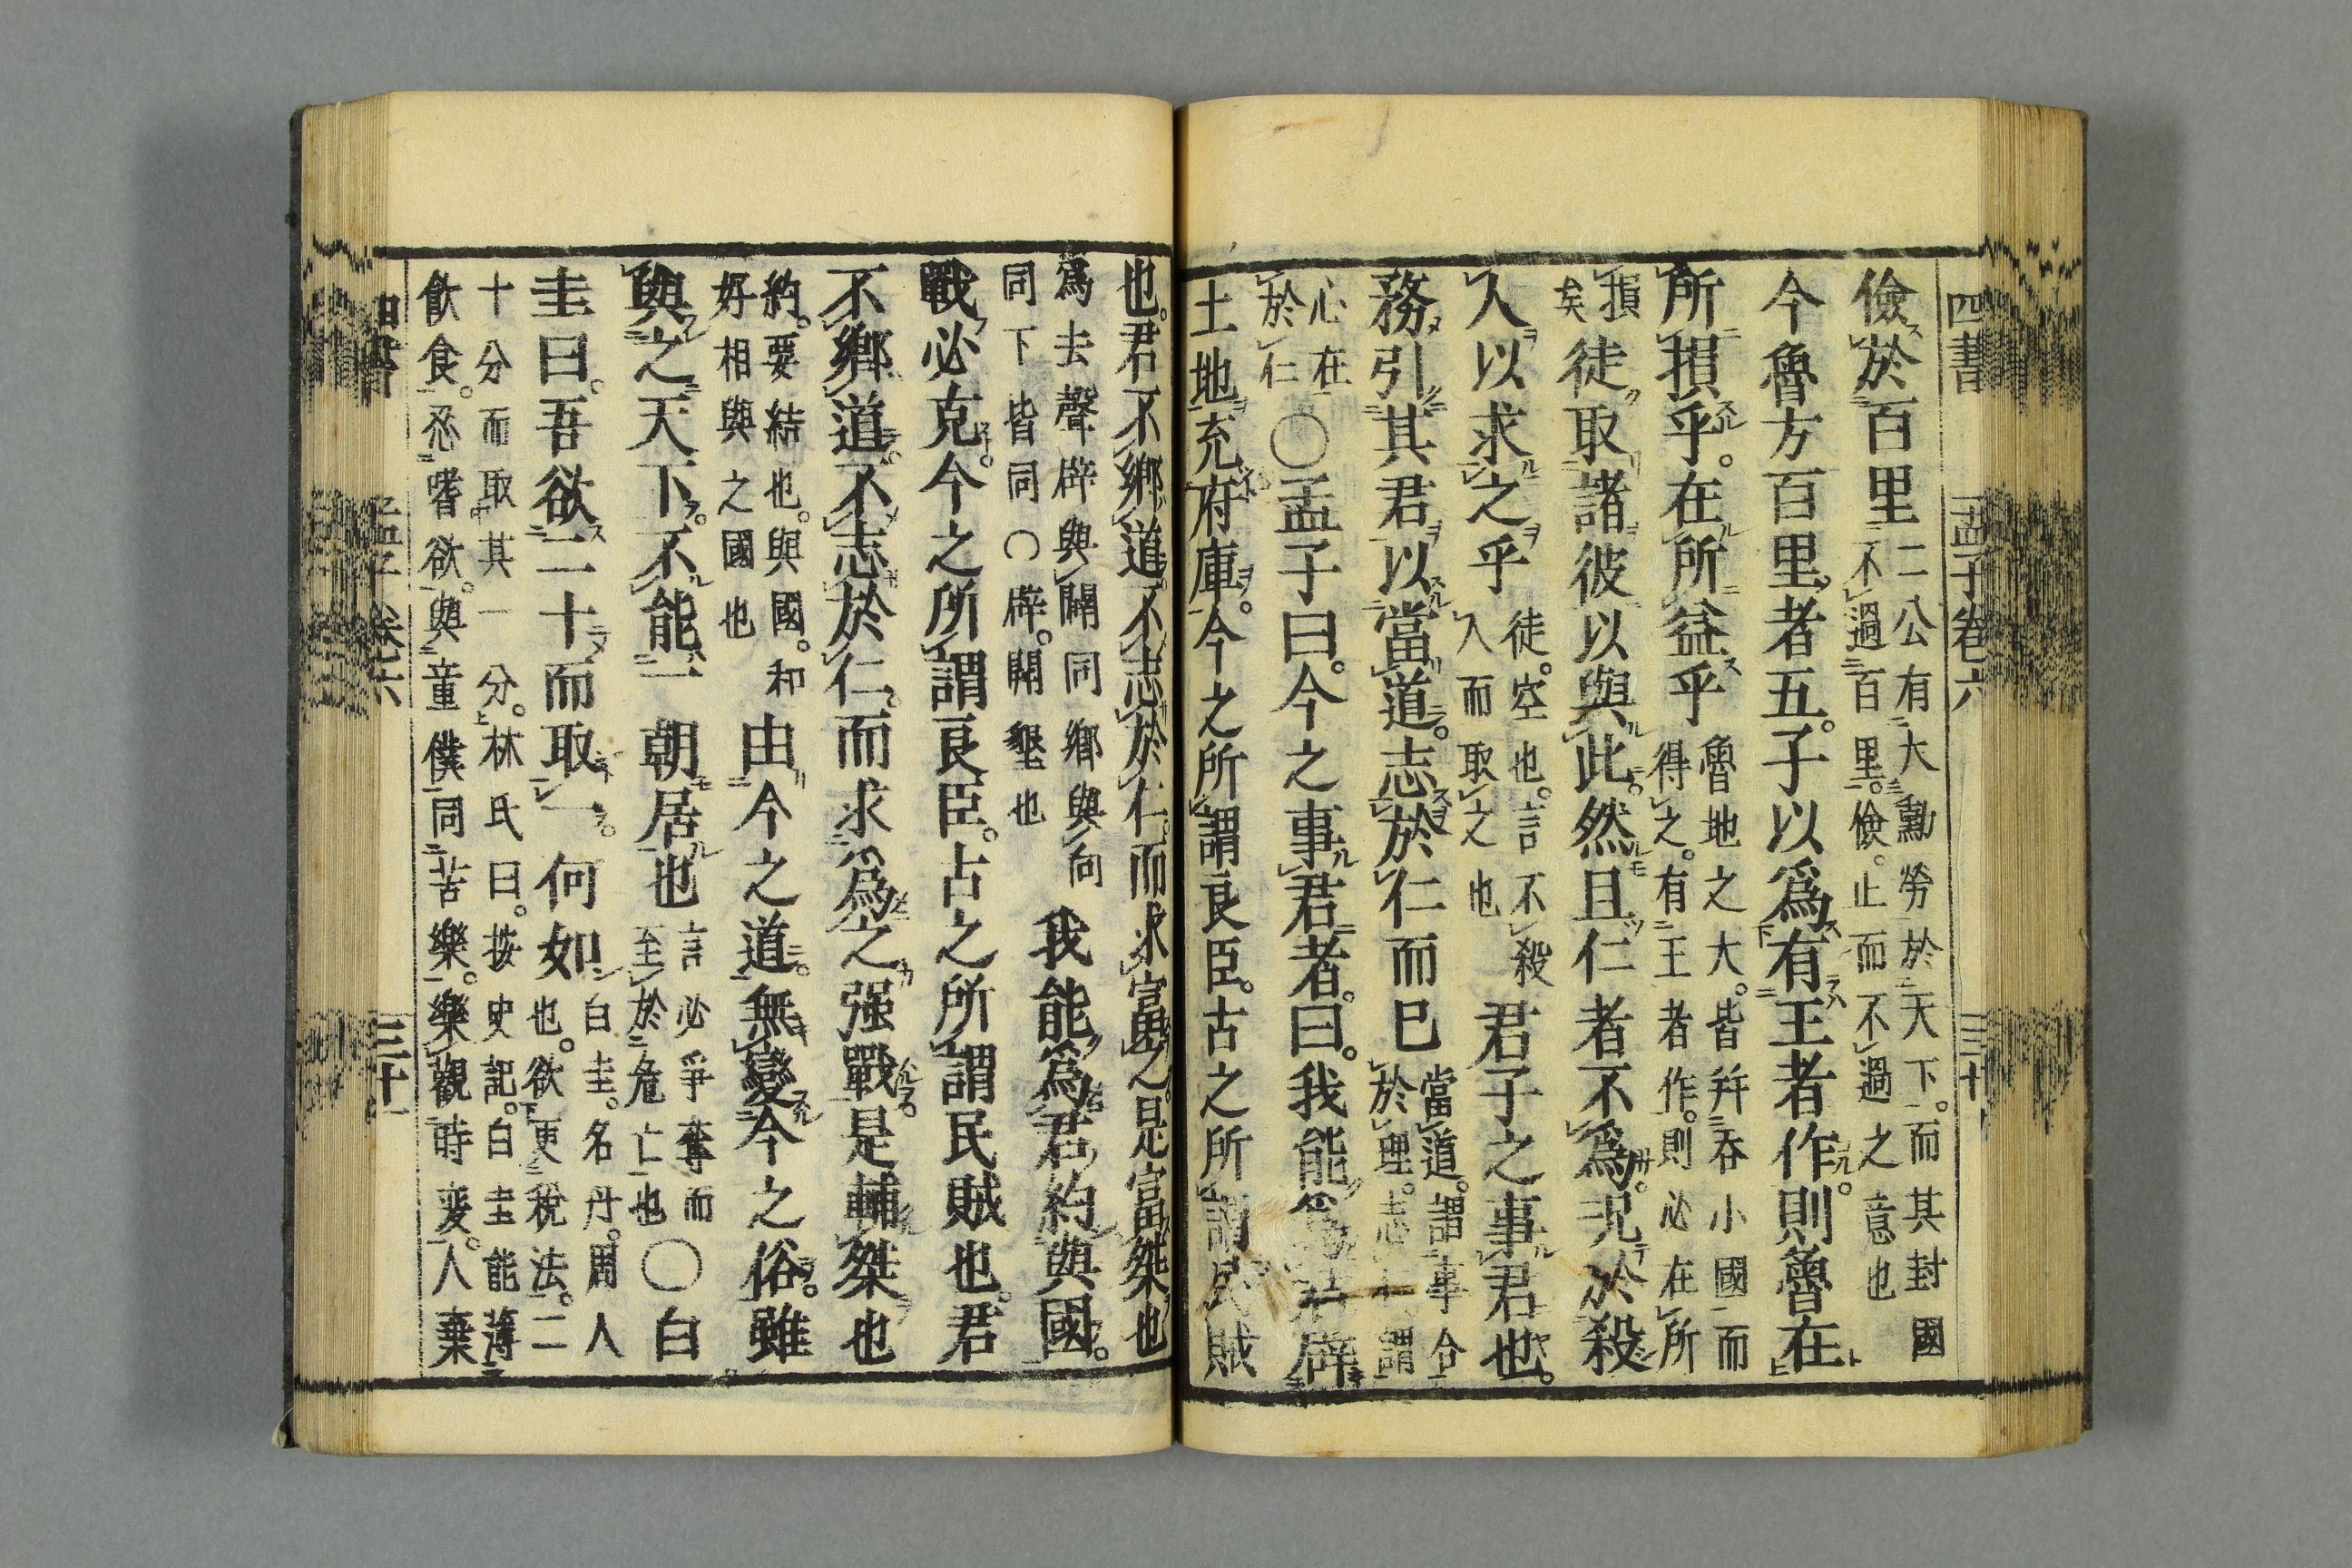 四書 孟子卷六 三十
儉於百里 二公有大勳勞於天下。而其封國
不過百里。儉。止而不過之意也
今魯方百里者五。子以爲有王者作。則魯在
所損乎。在所益乎 魯地之大。皆并吞小國而
得之。有王者作。則必在所
損
矣 徒取諸彼以與此。然且仁者不爲。況於殺
人以求之乎 徒。空也。言不殺
人而取之也 君子之事君也。
務引其君以當道。志於仁而已 當道。謂事合
於理。志 謂
心在
於仁 ○孟子曰。今之事君者。曰。我能爲君辟
土地充府庫。今之所謂良臣。古之所謂民賊
也。君不鄉道不志於仁而求富之。是富桀也
爲去聲辟與闢同鄉與向
同下皆同○辟。開墾也 我能爲君約與國。
戰必克。今之所謂良臣。古之所謂民賊也。君
不鄉道。不志於仁。而求爲之强戰。是輔桀也
約。要結也。與國。和
好相與之國也 由今之道。無變今之俗。雖
與之天下。不能一朝居也 言必爭奪而
至於危亡也 ○白
圭曰。吾欲二十而取一。何如 白圭。名丹。周人
也。欲更稅法。二
十分而取其一分。林氏曰。按史記。白圭能薄
飲食。忍嗜欲。與童僕同苦樂。樂觀時変。人棄
四書 孟子 卷六 三十一